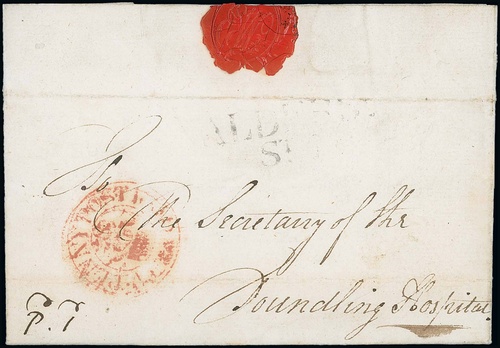 ALD
ST
To
The Secretary of the
Foundling Hospital
PENNY POST
P. 7